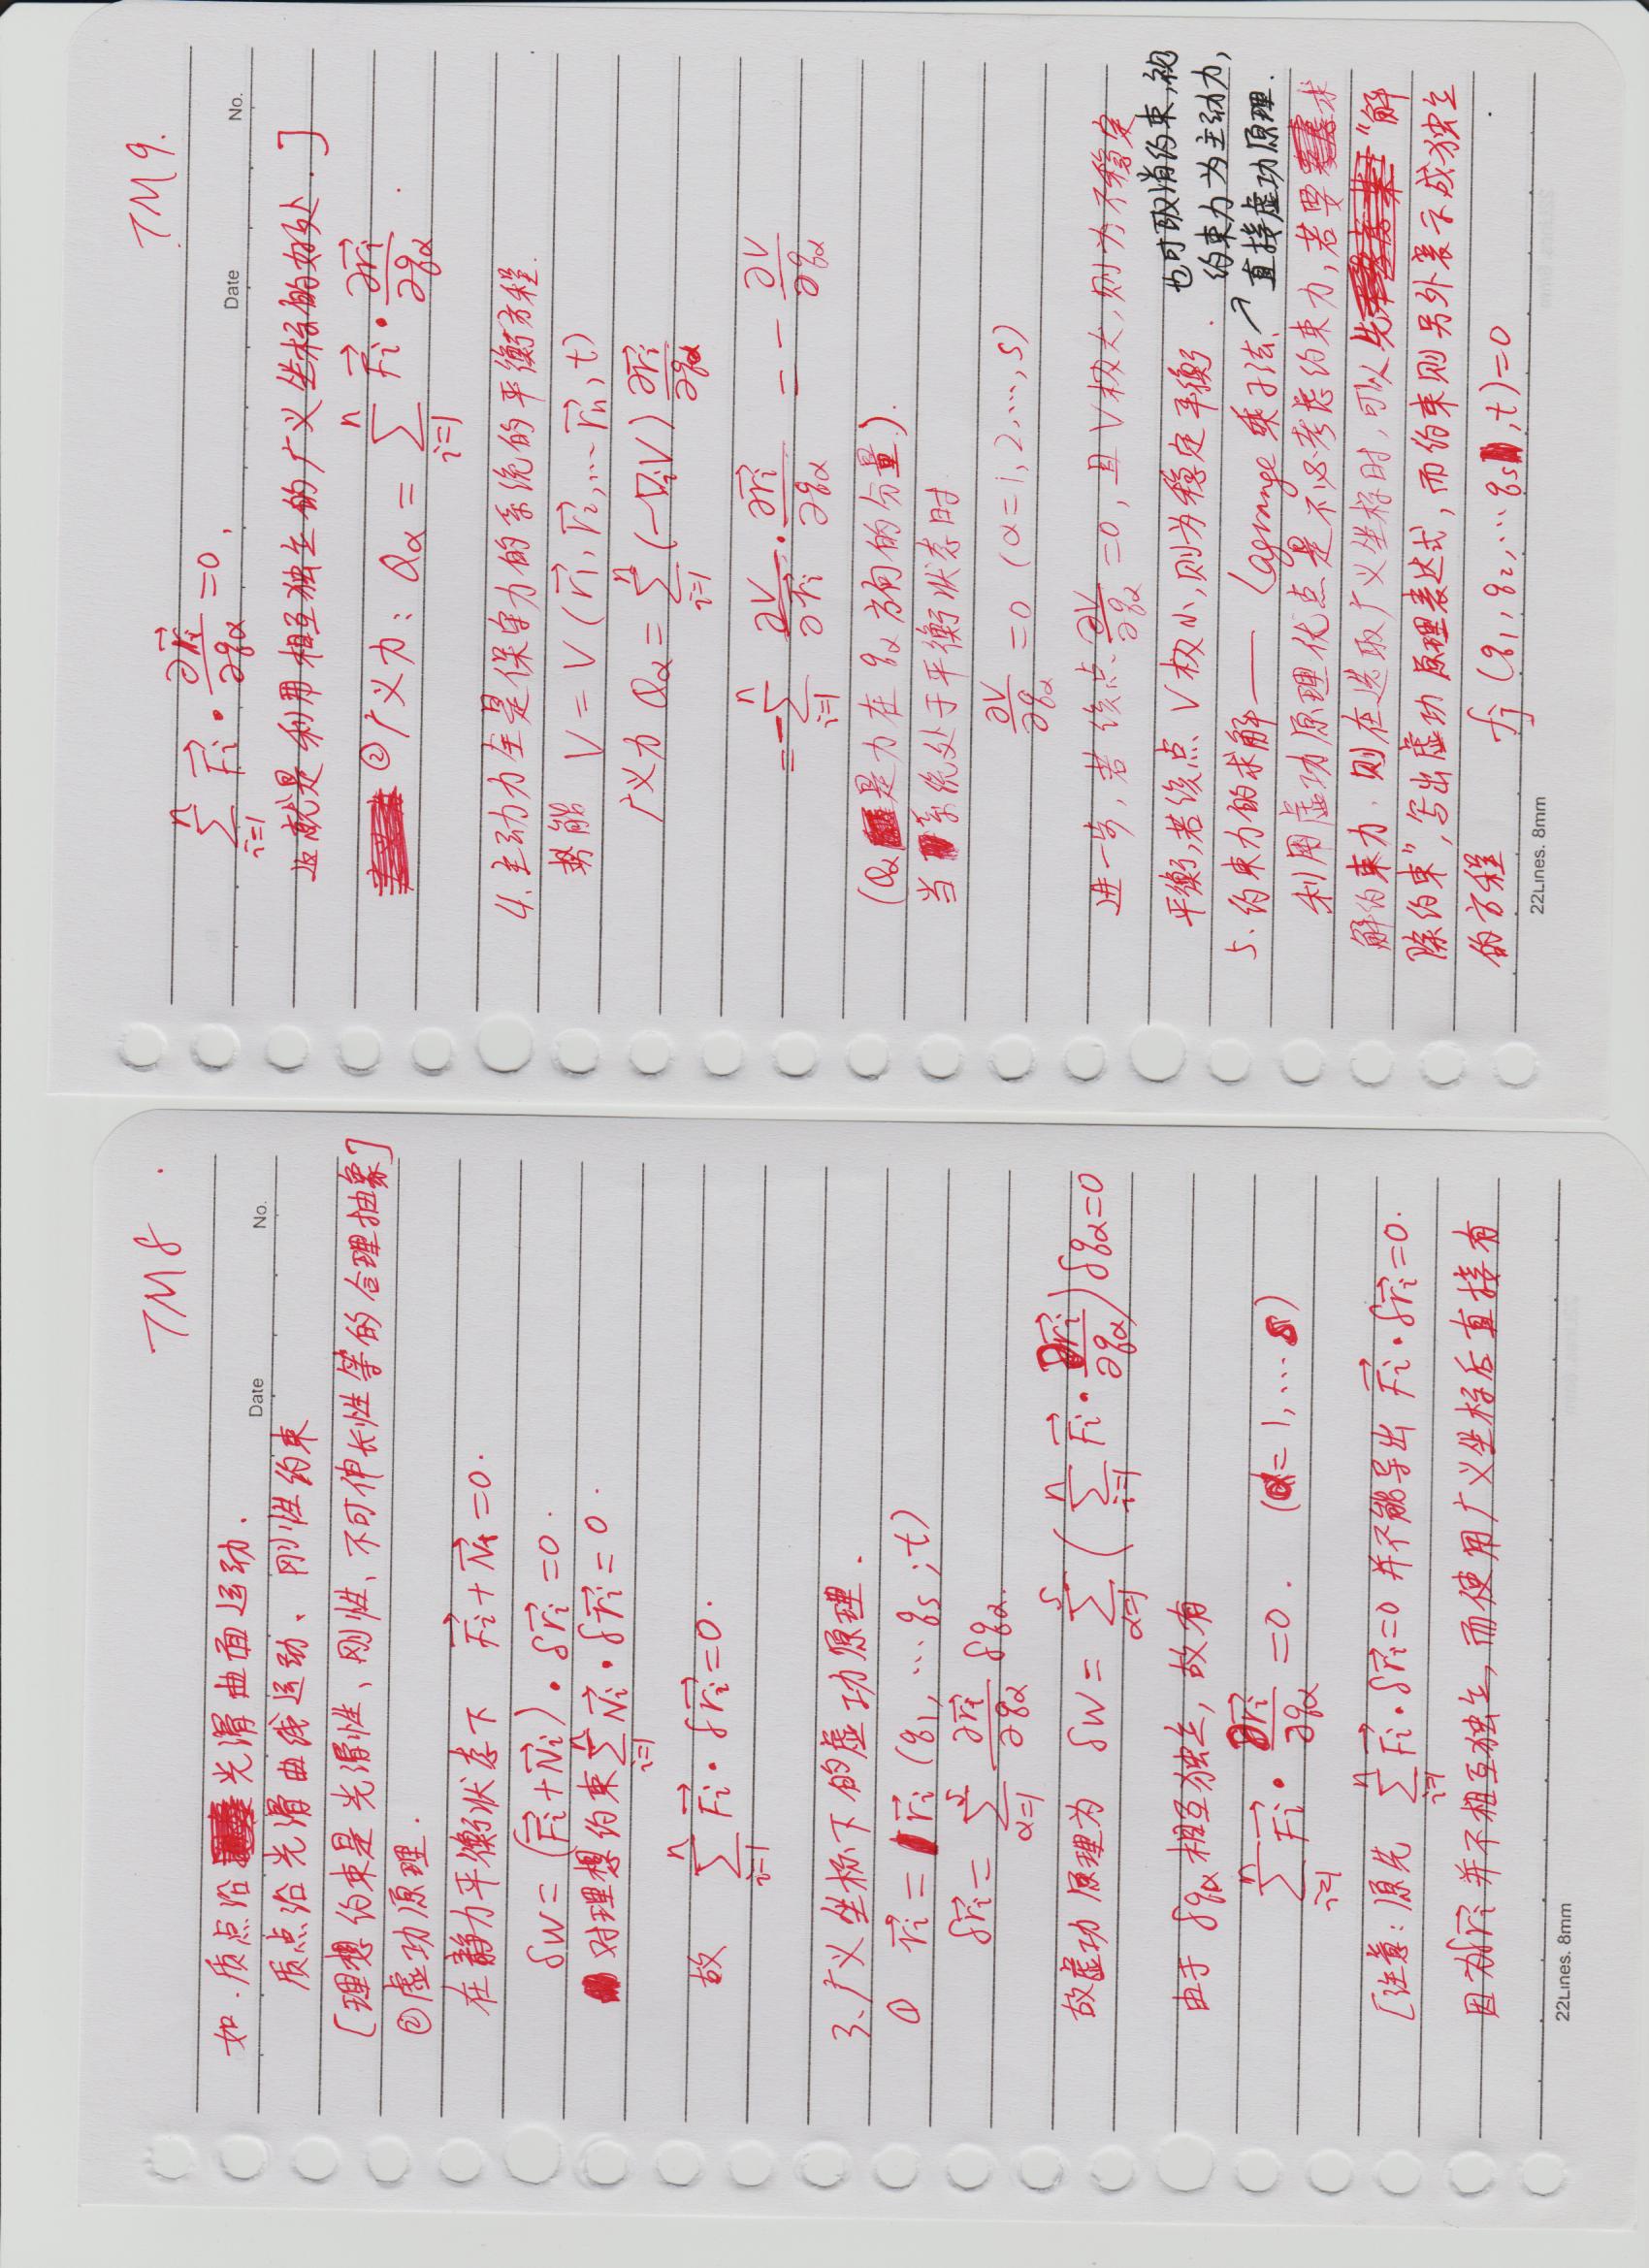 TM8
如.质点沿光滑曲面运动.
Date No.
质点沿光滑曲线运动、刚性约束
[理想约束是光滑性、刚性、不可伸长性等的合理抽象]
②虚功原理.
在静力平衡状态下 $\vec{F_i}+\vec{N_i}=0$.
$\delta W=(\vec{F_i}+\vec{N_i})\cdot\delta\vec{r_i}=0$.
对理想约束 $\sum_{i=1}^{n}\vec{N_i}\cdot\delta\vec{r_i}=0$.
故 $\sum_{i=1}^{n}\vec{F_i}\cdot\delta\vec{r_i}=0$.
3、广义坐标下的虚功原理.
① $\vec{r_i}=\vec{r_i}(q_1,\cdots q_s;t)$
$\delta\vec{r_i}=\sum_{\alpha=1}^{s}\frac{\partial\vec{r_i}}{\partial q_\alpha}\delta q_\alpha$.
故虚功原理为 $\delta W=\sum_{\alpha=1}^{s}\left(\sum_{i=1}^{n}\vec{F_i}\cdot\frac{\partial\vec{r_i}}{\partial q_\alpha}\right)\delta q_\alpha=0$
由于 $\delta q_\alpha$ 相互独立,故有
$\sum_{i=1}^{n}\vec{F_i}\cdot\frac{\partial\vec{r_i}}{\partial q_\alpha}=0$. $(\alpha=1,\cdots s)$
[注意:原先 $\sum_{i=1}^{n}\vec{F_i}\cdot\delta\vec{r_i}=0$ 并不能导出 $\vec{F_i}\cdot\delta\vec{r_i}=0$.
因为$\delta\vec{r_i}$ 并不相互独立,而使用广义坐标后直接有
22Lines. 8mm
TM9.
$\sum_{i=1}^{n}\vec{F_i}\cdot\frac{\partial\vec{r_i}}{\partial q_\alpha}=0$,
Date No.
这就是利用相互独立的广义坐标的好处.]
②广义力: $Q_\alpha=\sum_{i=1}^{n}\vec{F_i}\cdot\frac{\partial\vec{r_i}}{\partial q_\alpha}$.
4、主动力全是保守力的系统的平衡方程.
势能 $V=V(\vec{r_1},\vec{r_2},\cdots\vec{r_n},t)$
广义力 $Q_\alpha=\sum_{i=1}^{n}(-\nabla_i V)\frac{\partial\vec{r_i}}{\partial q_\alpha}$
$=-\sum_{i=1}^{n}\frac{\partial V}{\partial\vec{r_i}}\cdot\frac{\partial\vec{r_i}}{\partial q_\alpha}=-\frac{\partial V}{\partial q_\alpha}$
($Q_\alpha$是力在 $q_\alpha$ 方向的分量.).
当系统处于平衡状态时
$\frac{\partial V}{\partial q_\alpha}=0$ $(\alpha=1,2,\cdots,s)$
进一步,若该点 $\frac{\partial V}{\partial q_\alpha}=0$,且V极大,则为不稳定
平衡,若该点 V极小,则为稳定平衡.
5、约束力的求解—— Lagrange 乘子法、↗
也可取消约束,视
约束力为主动力,
直接虚功原理.
利用虚功原理优点是不必考虑约束力,若要求
解约束力.则在选取广义坐标时,可以先“解
除约束”,写出虚功原理表达式,而约束则另外表示成独立
的方程 $f_j(q_1,q_2,\cdots q_s,t)=0$
22Lines. 8mm